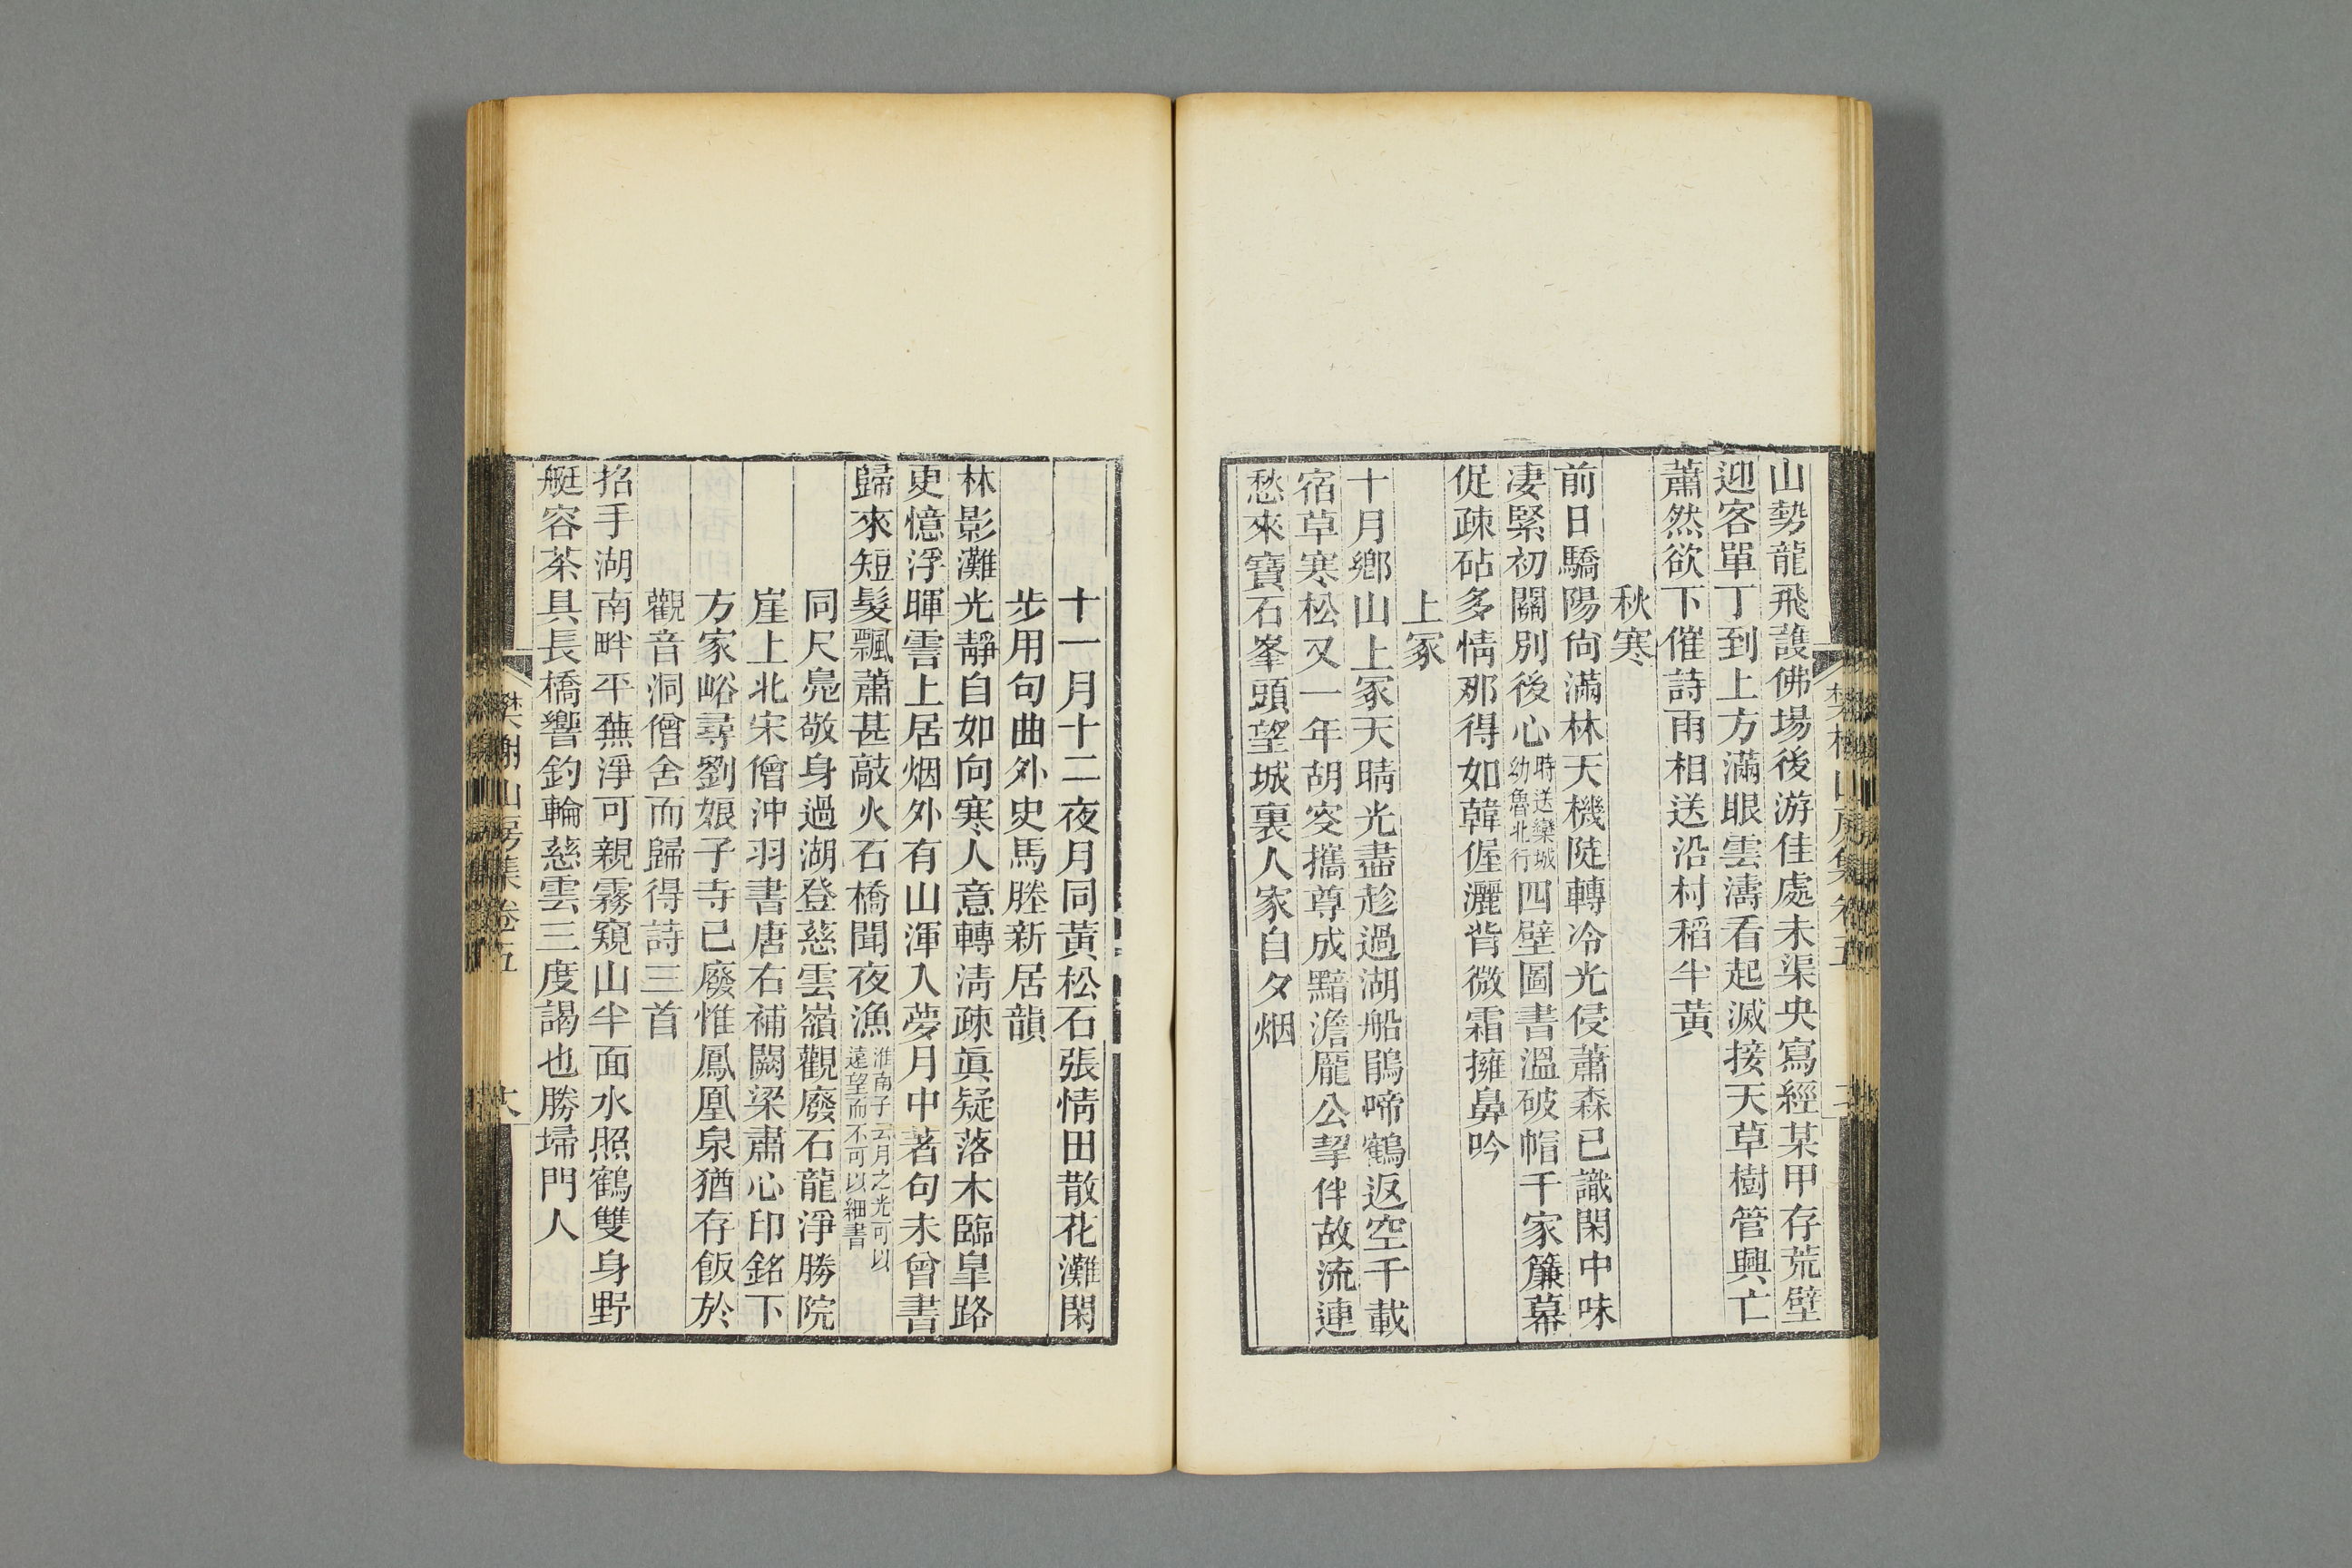 山勢龍飛護佛場後游佳處未渠央寫經某甲存荒壁
迎客單丁到上方滿眼雲濤看起滅接天草樹管興亡
蕭然欲下催詩雨相送沿村稻半黃
秋寒
前日驕陽尙滿林天機陡轉冷光侵蕭森已識閑中味
凄緊初關別後心時送欒城幼魯北行四壁圖書溫破帽千家簾幕
促疎砧多情那得如韓偓灑背微霜擁鼻吟
上冢
十月鄉山上冢天晴光盡趁過湖船鵑啼鶴返空千載
宿草寒松又一年胡窆攜尊成黯澹龐公挈伴故流連
愁來寶石峯頭望城裏人家自夕烟
十一月十二夜月同黃松石張情田散花灘閑
步用句曲外史馬塍新居韻
林影灘光靜自如向寒人意轉淸疎眞疑落木臨臯路
更憶浮暉霅上居烟外有山渾入夢月中著句未曾書
歸來短髮飄蕭甚敲火石橋聞夜漁淮南子云月之光可以遠望而不可以細書
同尺鳧敬身過湖登慈雲嶺觀廢石龍淨勝院
崖上北宋僧沖羽書唐右補闕梁肅心印銘下
方家峪尋劉娘子寺已廢惟鳳凰泉猶存飯於
觀音洞僧舍而歸得詩三首
招手湖南畔平蕪淨可親霧窺山半面水照鶴雙身野
艇容茶具長橋響釣輪慈雲三度謁也勝埽門人
樊榭山房集 卷五